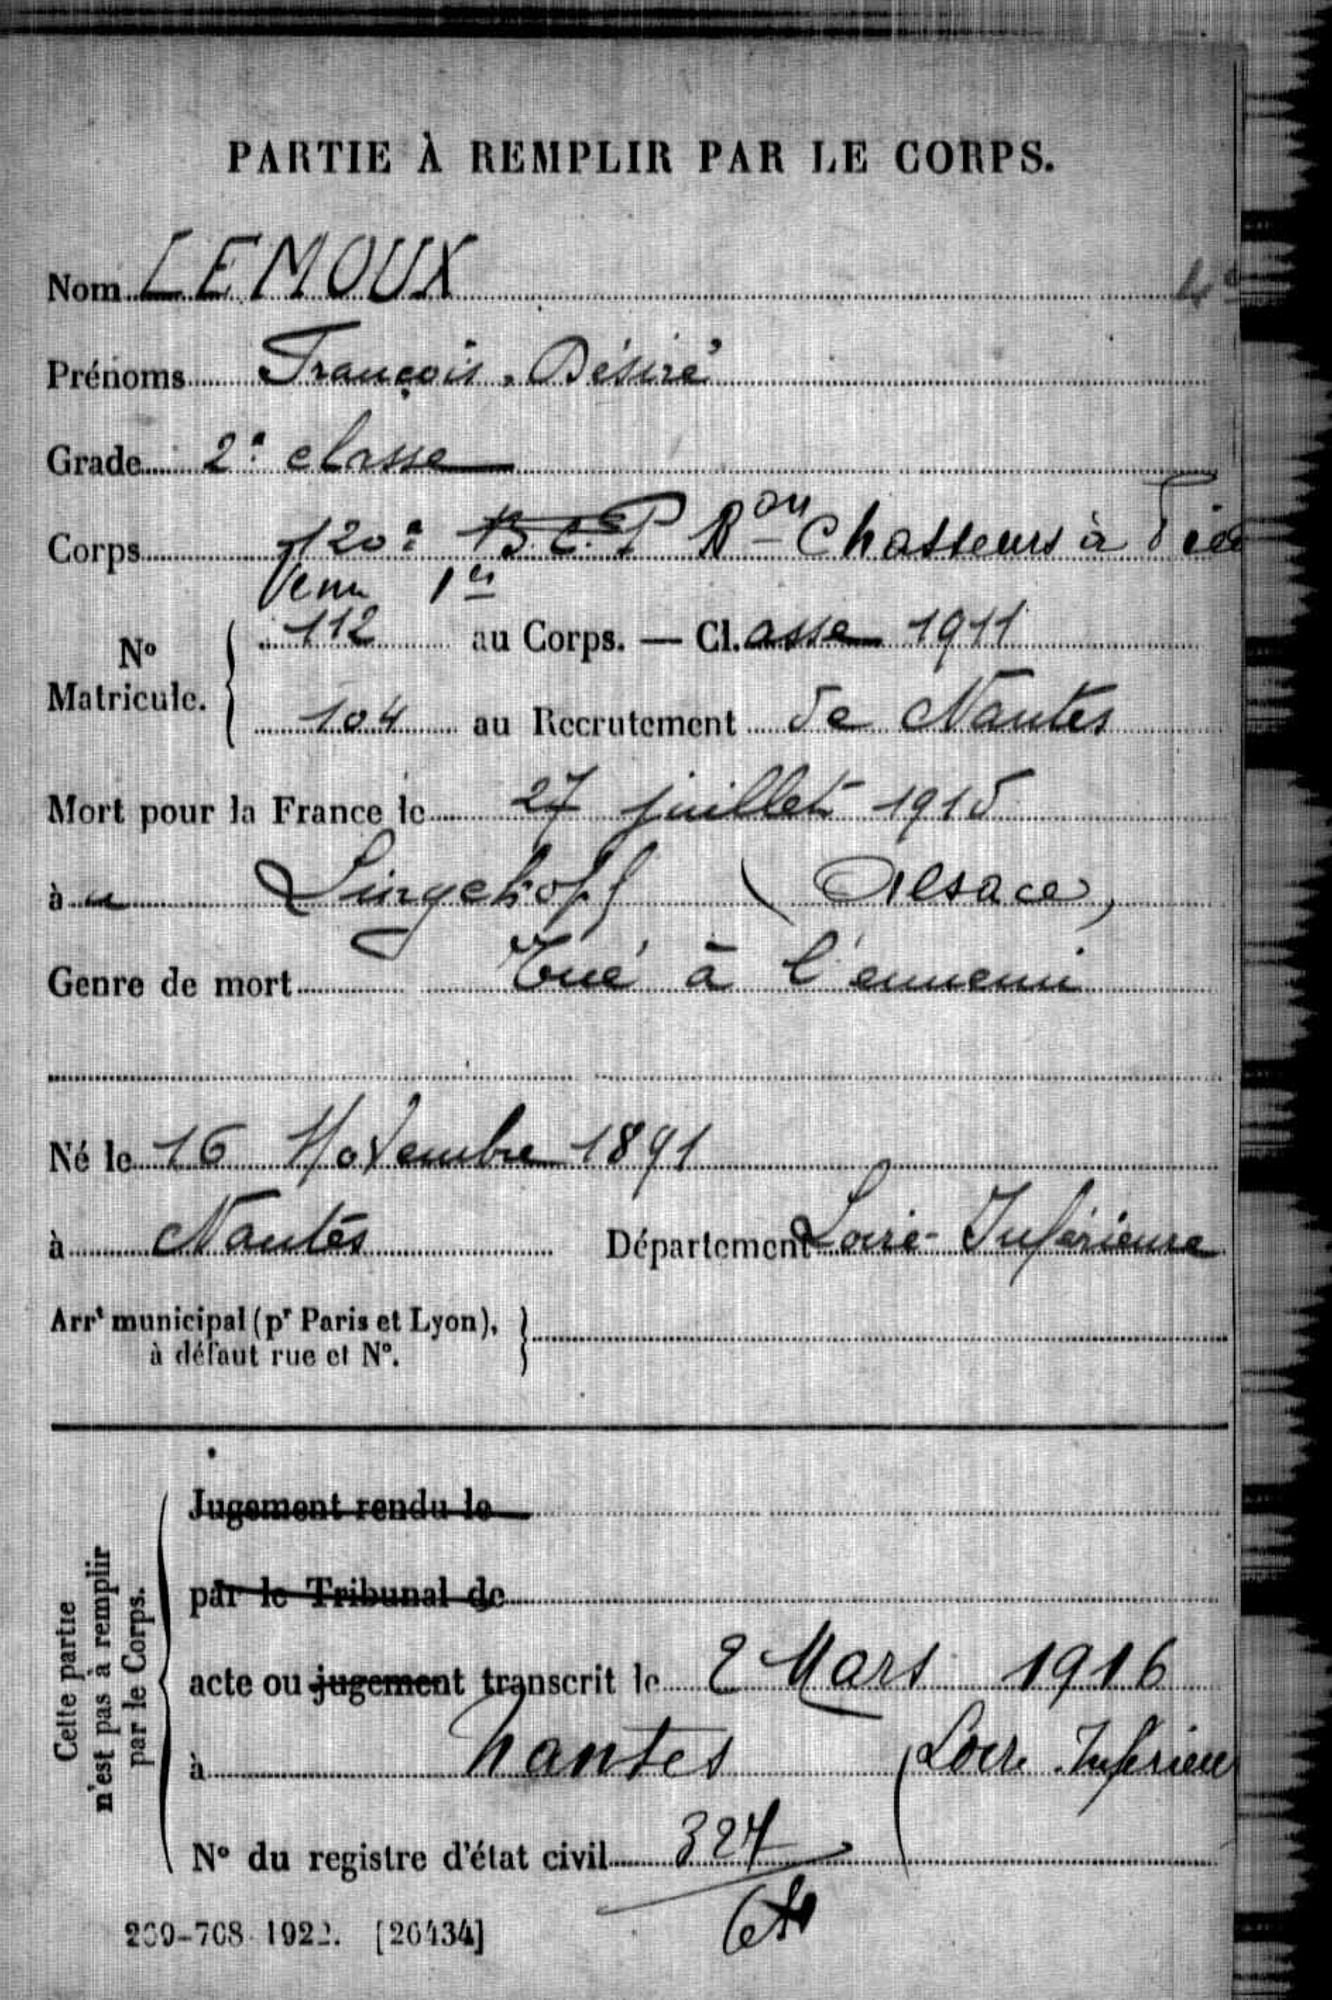 PARTIE À REMPLIR PAR LE CORPS.
Nom LEMOUX
Prénoms François, Désiré
Grade 2e classe
Corps 120e B.C.P Bon Chasseurs à Pied
Venu 1er
No Matricule. 112 au Corps. — Cl.asse 1911
104 au Recrutement de Nantes
Mort pour la France le 27 juillet 1915
à au Lingekopf (Alsace)
Genre de mort Tué à l'ennemi
Né le 16 Novembre 1891
à Nantes Département Loire-Inférieure
Arrt municipal (pr Paris et Lyon),
à défaut rue et No.
Cette partie
n'est pas à remplir
par le Corps.
Jugement rendu le
par le Tribunal de
acte ou jugement transcrit le 2 Mars 1916
à Nantes (Loire Inférieur
No du registre d'état civil 327
[26434]